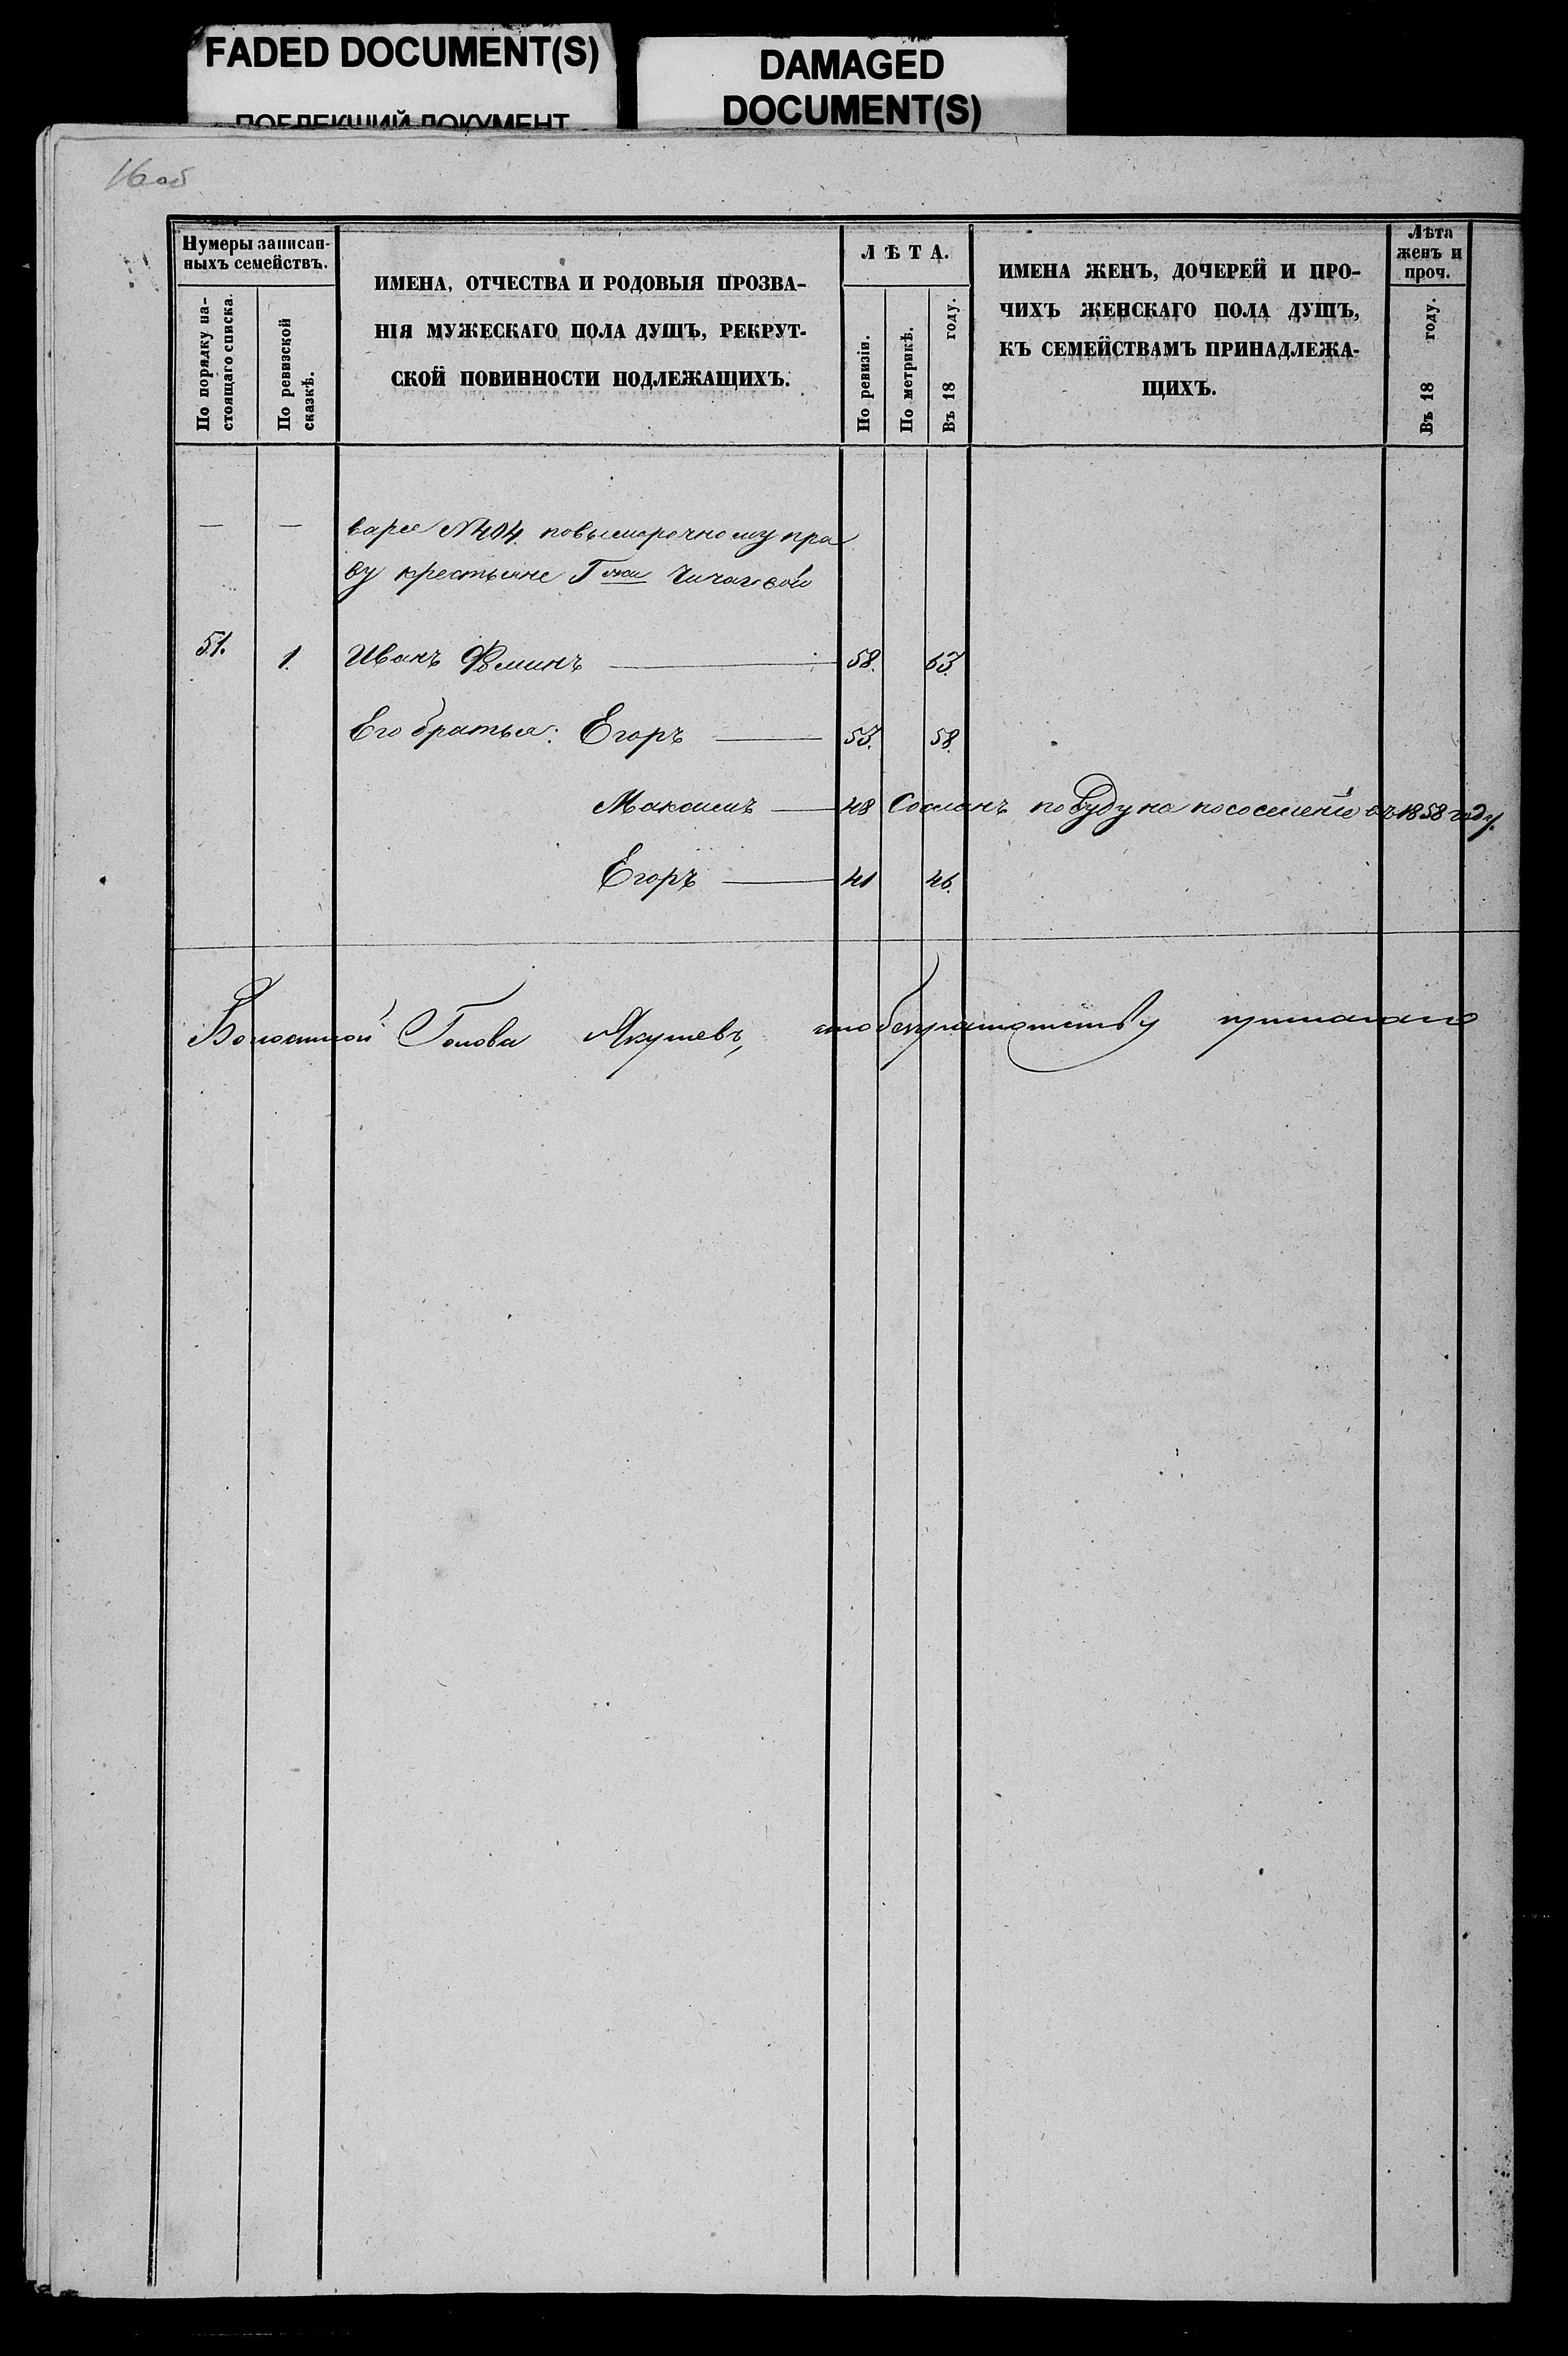 FADED DOCUMENT(S)
ПОБЛЕКШИЙ ДОКУМЕНТ
DAMAGED
DOCUMENT(S)
16 об
Нумеры записан-
ныхъ семействъ.
По порядку на-
стоящаго списка.
По ревизской
сказкѣ.
ИМЕНА, ОТЧЕСТВА И РОДОВЫЯ ПРОЗВА-
НІЯ МУЖЕСКАГО ПОЛА ДУШЪ, РЕКРУТ-
СКОЙ ПОВИННОСТИ ПОДЛЕЖАЩИХЪ.
ЛѢТА.
По ревизіи.
По метрикѣ.
Въ 18 году.
ИМЕНА ЖЕНЪ, ДОЧЕРЕЙ И ПРО-
ЧИХЪ ЖЕНСКАГО ПОЛА ДУШЪ,
КЪ СЕМЕЙСТВАМЪ ПРИНАДЛЕЖА-
ЩИХЪ.
Лѣта
женъ и
проч.
Въ 18 году.
— — варя № 404. по выморочному пра
ву крестьяне Г-жи Чичаговой
51. 1. Иванъ Фоминъ — 58. 63.
Его братья: Егоръ — 53. 58.
Максимъ — 48 Сосланъ по суду на поселеніе въ 1858 году.
Егоръ — 41 46.
Волостной Голова Якушевъ, а по безграмотству